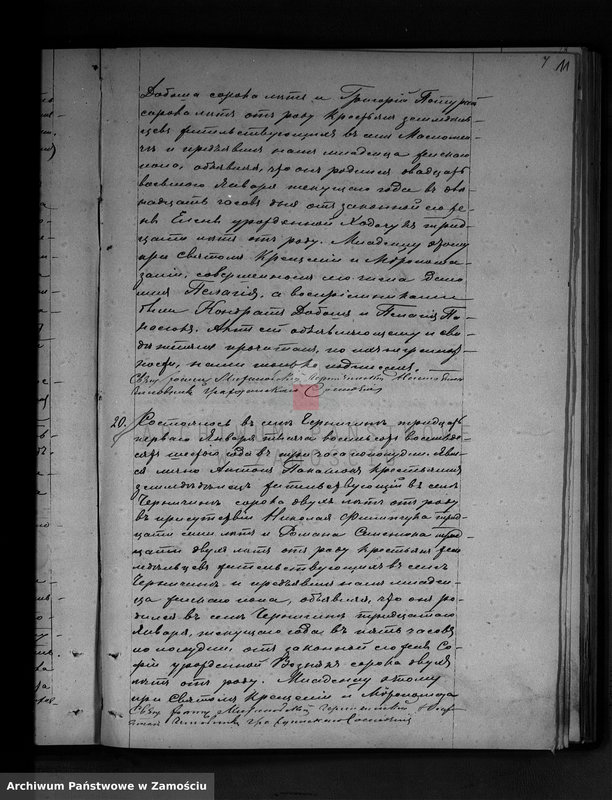 7 11
Дабома сорока лѣтъ и Григорій
сорока лѣтъ отъ роду крестьянъ земледѣль-
цевъ жительствующихъ въ селѣ
и предъявилъ намъ младенца женскаго
пола, объявляя, что онъ родился двадцать
восьмого Января текущаго года въ две-
надцать часовъ дня отъ законной его же-
ны Елены урожденной Ходачукъ трид-
цати лѣтъ отъ роду. Младенцу этому
при Святомъ Крещеніи и Мѵропома-
заніи, совершенномъ сего числа дано
имя Пелагія, а воспріемниками
были Кондратъ Дабома и Пелагія Па-
Актъ сей объявляющему и сви-
дѣтелямъ прочитанъ, по неграмот-
ности, нами только подписанъ.
20. Состоялось въ селѣ Чернигинъ тридцать
перваго Января тысяча восемьсотъ восемьде-
сятъ шестого года въ три часа пополудни. Яви-
лся лично Антонъ крестьянинъ
земледѣлецъ жительствующій въ селѣ
Чернигинъ сорока двухъ лѣтъ отъ роду
въ присутствіи Николая трид-
цати семи лѣтъ и Романа Сметюха трид-
цати двухъ лѣтъ отъ роду крестьянъ зем-
ледѣльцевъ жительствующихъ въ селѣ
Чернигинъ и предъявилъ намъ младен-
ца женскаго пола, объявляя, что онъ ро-
дился въ селѣ Чернигинъ тридцатаго
Января, текущаго года въ пять часовъ
по полудни, отъ законной его жены Со-
фіи урожденной Возняк сорока двухъ
лѣтъ отъ роду. Младенцу этому
при Святомъ Крещеніи и Мѵропомаза
ARCHIWUM PAŃSTWOWE
W ZAMOŚCIU
Archiwum Państwowe w Zamościu